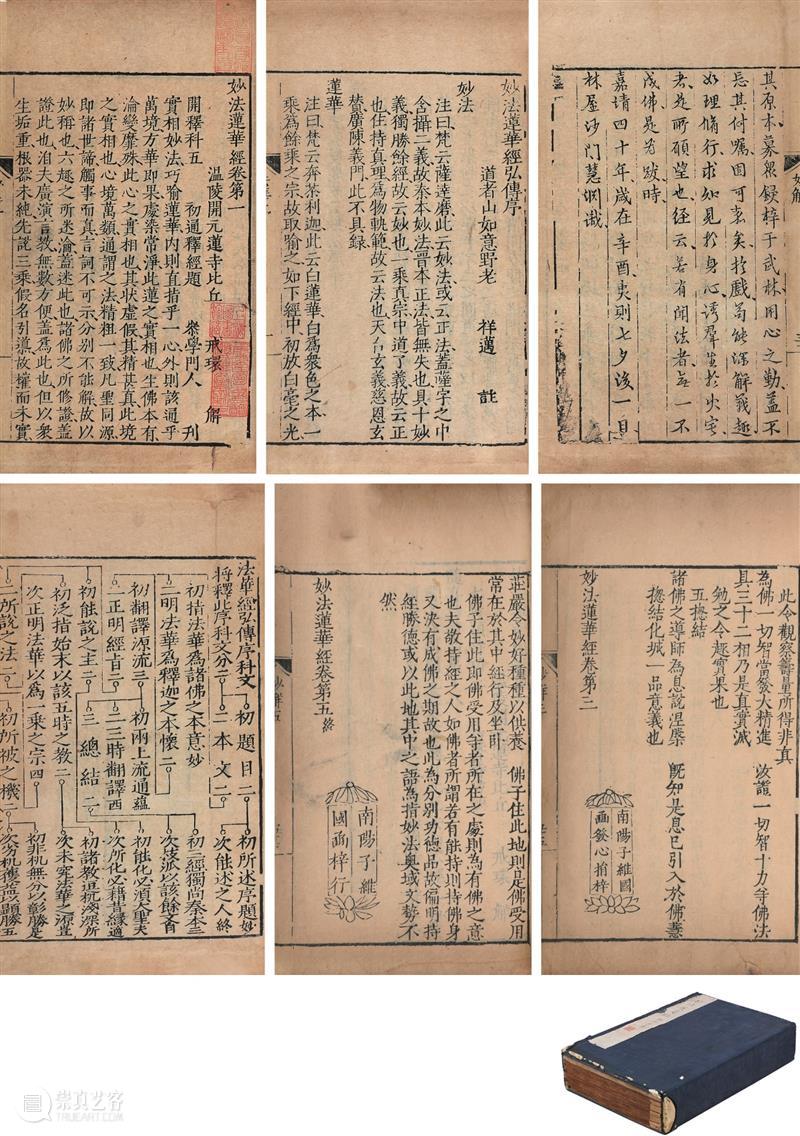 妙法蓮華經卷第一
溫陵開元蓮寺比丘 戒環 解
開釋科五 初通釋經題 叅學門人 刊
實相妙法巧喻蓮華內則直指乎一心外則該通乎
萬境方華即果處染常淨此蓮之實相也生佛本有
淪變靡殊此心之實相也其狀虛假其精甚真此境
之實相也心境萬類通謂之法精粗一致凡聖同源
即諸世諦觸事而真言詞不可示分別不能解故以
妙稱也六趣之所迷淪蓋迷此也諸佛之所修證蓋
證此也洎夫廣演言教無數方便蓋為此也但以衆
生垢重根器未純先說三乘假名引導故權而未實
妙法蓮華經弘傳序
道者山如意野老 祥邁 註
妙法
注曰梵云薩達磨此云妙法或云正法蓋薩字之中
含攝二義故秦本妙法晉本正法皆無失也具十妙
義獨勝餘經故云妙也一乘真宗中道了義故云正
也住持真理為物軌範故云法也天台玄義慈恩玄
贊廣陳義門此不具録
蓮華
注曰梵云奔荼利迦此云白蓮華白為衆色之本一
乘為餘乘之宗故取喻之如下經中初放白毫之光
其原本募眾鋟梓于武林用心之勤蓋不
忘其付囑固可嘉矣於戲苟能深解義趣
如理脩行求知見於身心誘羣蒙於火宅
者是所願望也經云若有聞法者無一不
成佛是為跋時
嘉靖四十年歲在辛酉夷則七夕後一日
林屋沙門慧烱識
法華經弘傳序科文
將釋此序科文分二 初題目二 初所述序題妙
初指法華為諸佛之本意妙 二本文二 次能述之人終
二明法華為釋迦之本懷二 初二經獨尚秦本三
初翻譯源流三 初兩上流通蘊 次落派以該餘文者
二正明經旨二 二三時翻譯西 初能化必須大聖夫
初能說之主二 三總結二 次所化必藉其緣適
初泛指始末以該五時之教二 初諸教沮抗淺深所
次正明法華以為一乘之宗四 次未窮法華之源豈
二所說之法二 初所被之機二 初非机無分以彰勝是
莊嚴令妙好種種以供養 佛子住此地則是佛受用
常在於其中經行及坐卧
佛子住此即佛受用等者所在之處則為有佛之意
也夫教持經之人如佛者所謂若有能持則持佛身
又決有成佛之期故也此為分別功德品故徧明持
經勝德或以此地其中之語為指妙法奧域文勢不
然
妙法蓮華經卷第五 終
南陽子維
國畫梓行
此令觀察壽量所得非真
為佛一切智當發大精進 汝證一切智十力等佛法
具三十二相乃是真實滅
勉之令趣實果也
五揔結
諸佛之導師為息說涅槃 既知是息已引入於佛慧
揔結化城一品意義也
妙法蓮華經卷第三
南陽子維國
畫發心捐梓
崇真艺客
TRUEART.COM